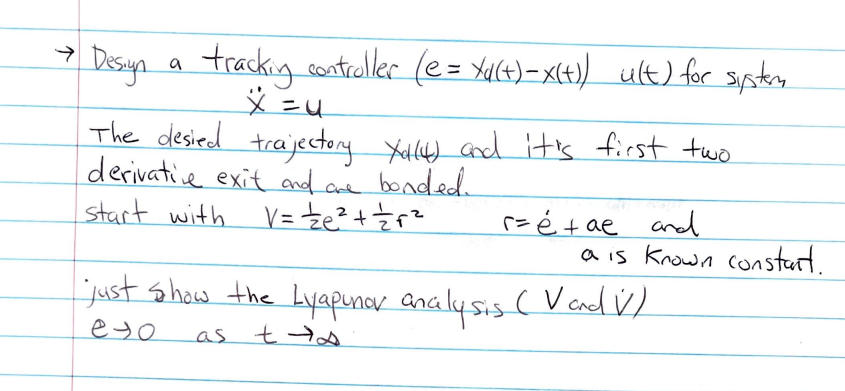 → Design a trackiy controller (e = xd(t) - x(t)) u(t) for system
ẍ = u
The desied trajectory xd(t) and it's first two
derivative exit and are bonded.
start with V = 1/2 e² + 1/2 r² r = ė + ae and
a is known constant.
just show the Lyapunov analysis ( V and V̇ )
e → 0 as t → ∞